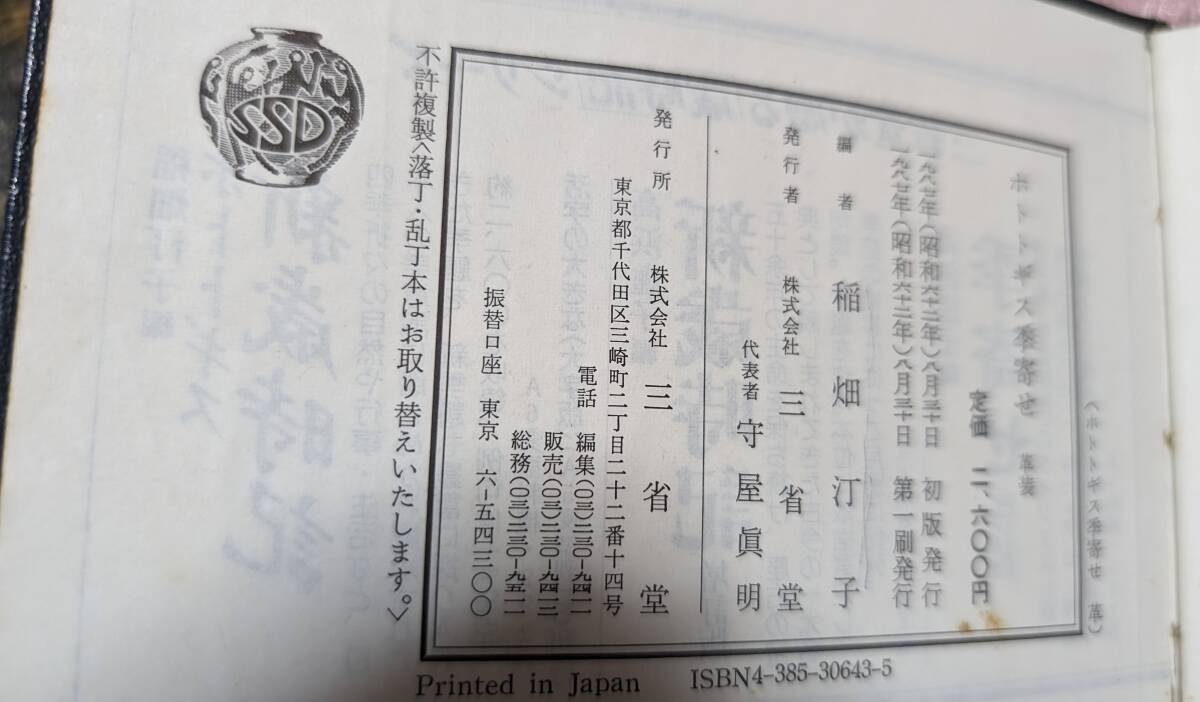 〈ホトトギス季寄せ 革〉
ホトトギス季寄せ 革装
定価 二、六〇〇円
一九八七年(昭和六二年)八月三十日 初版発行
一九八七年(昭和六二年)八月三十日 第一刷発行
編者 稲畑汀子
発行者 株式会社 三省堂
代表者 守屋眞明
発行所 株式会社 三省堂
東京都千代田区三崎町二丁目二十二番十四号
電話 編集(〇三)二三〇-九四一一
販売(〇三)二三〇-九四一二
総務(〇三)二三〇-九五一一
振替口座 東京 六-五四三〇〇
不許複製〈落丁・乱丁本はお取り替えいたします。〉
SSD
Printed in Japan ISBN4-385-30643-5